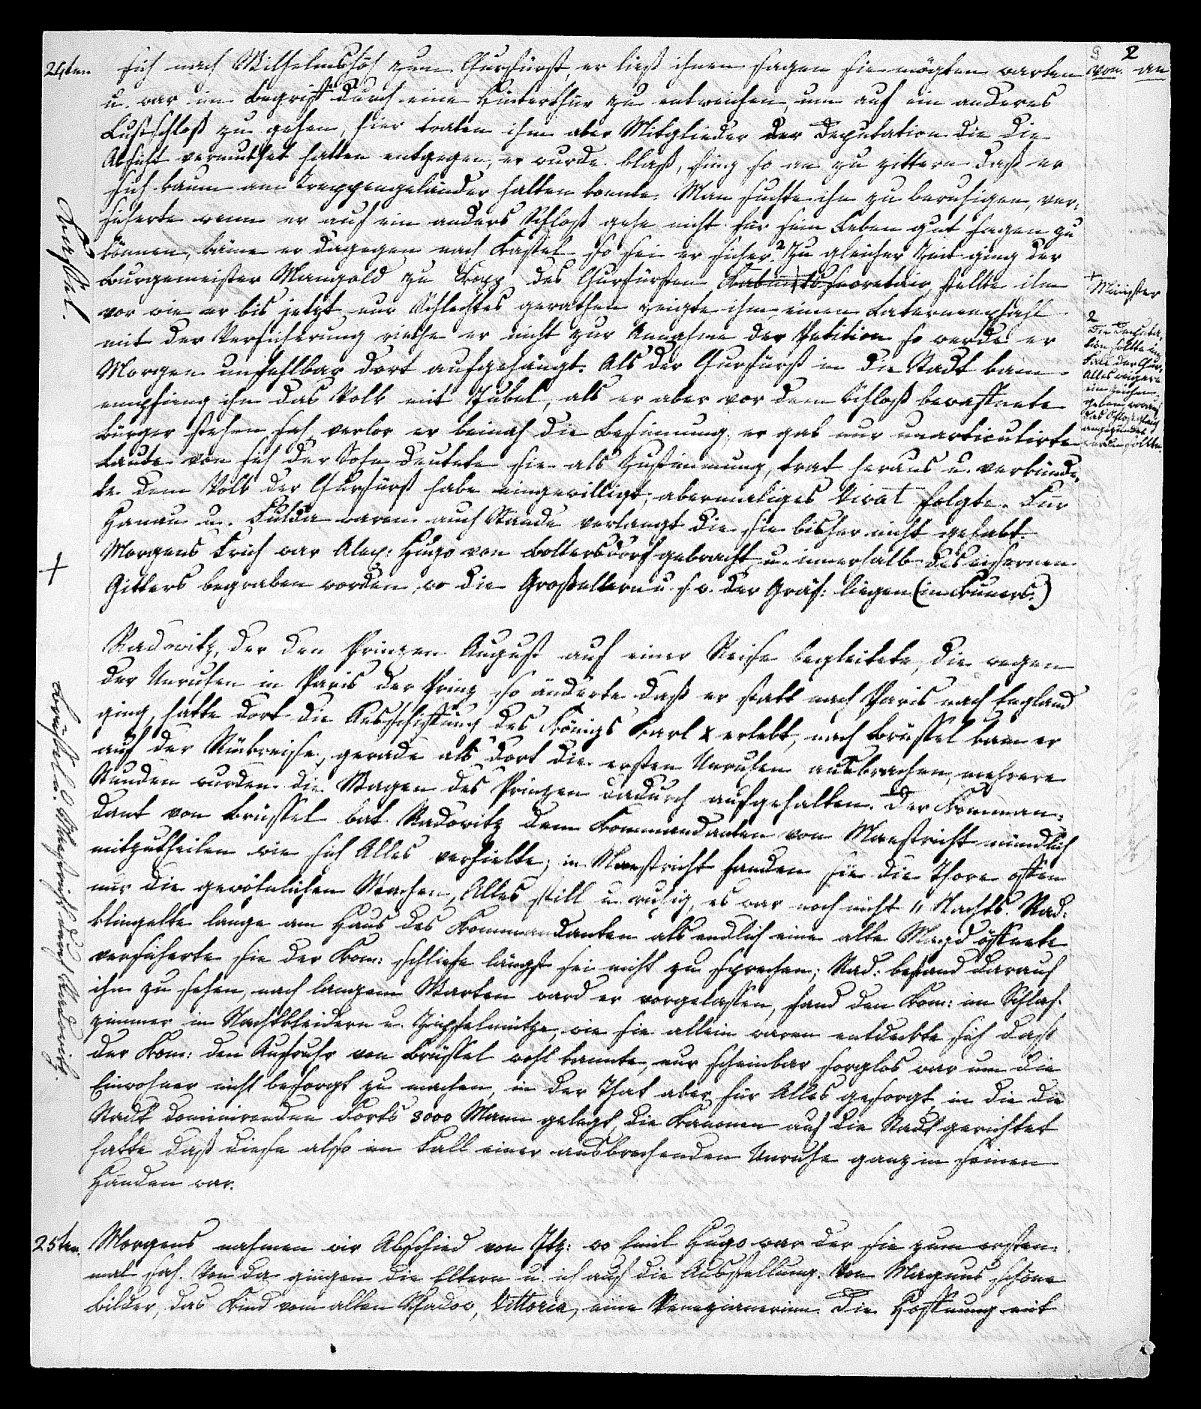 2
24ten. sich nach Wilhelmshöh zum Churfürst, er ließ ihnen sagen sie mögten warten
u. war im Begriff durch eine Hinterthür zu entweichen um auf ein anderes
Lustschloß zu gehen, hier traten ihm aber Mitglieder der Deputation die die
Absicht vermuthet hatten entgegen, er wurde blaß, fing so an zu zittern daß er
sich kaum am Treppengeländer halten konnte. Man suchte ihn zu beruhigen, ver-
sicherte wenn er auf ein anders Schloß gehe nicht für sein Leben gut sagen zu
können, käme er dagegen nach Kassel so sei er sicher. Zu gleicher Zeit ging der
Bürgemeister Mangold zu des Churfürsten stellte ihm
vor wie er bis jetzt nur Schlechtes gerathen zeigte ihm einen Laternenpfahl
mit der Versicherung riethe er nicht zur Annahme der Petition so werde er
Morgen unfehlbar dort aufgehängt. Als der Churfürst in die Stadt kam
empfieng ihn das Volk mit Jubel, als er aber vor dem Schloß bewaffnete
Bürger stehen sah verlor er beinah die Besinnung, er gab nur unarticulirte
Laute von sich der Sohn deutete sie als Zustimmung, trat heraus u. verkünde-
te dem Volk der Churfürst habe eingewilligt; abermaliges Vivat folgte. Für
Hanau u. Fulda waren auch Stände verlangt die sie bisher nicht gehabt.
Morgens früh war Alex: Hugo von Boltersdorf gebracht u. innerhalb des eisernen
Gitters begraben worden, wo die Großeltern u. s. w. der Gräf: liegen
Kassel.
+ Minister
2
Die Deputa-
tion sollte im
Fall der Chur:
Alles
angezündet
werden sollte.
+
Radowitz, der den Prinzen August auf einer Reise begleitete, die wegen
der Unruhen in Paris der Prinz so änderte daß er statt nach Paris nach England
ging, hatte dort die Ausschiffung des Königs Karl X erlebt, nach Brüssel kam er
auf der Rückreise, gerade als dort die ersten Unruhen ausbrachen, mehrere
Stunden wurden die Wagen des Prinzen dadurch aufgehalten. Der Komman-
dant von Brüssel bat Radowitz dem Kommandanten von Maestricht mündlich
mitzutheilen wie sich Alles verhielte; in Maestricht fanden sie die Thore offen
nur die gewöhnlichen Wachen, Alles still u. ruhig, es war noch nicht 11 Nachts. Rad:
klingelte lange am Haus des Kommandanten als endlich eine alte Magd öffnete
versicherte sie der Kom: schliefe längst sei nicht zu sprechen; Rad: bestand darauf
ihn zu sehen, nach langem Warten ward er vorgelassen, fand den Kom: im Schlaf-
zimmer in Nachtkleidern u. Zipfelmütze, wie sie allein waren entdeckte sich daß
der Kom: den Aufruhr von Brüssel wohl kannte, nur scheinbar sorglos war um die
Einwohner nicht besorgt zu machen, in der That aber für Alles gesorgt, in die die
Stadt dominirenden Forts 3000 Mann gelegt, die Kanonen auf die Stadt gerichtet
hatte daß diese also im Fall einer ausbrechenden Unruhe ganz in seinen
Händen war.
Brüssel u. Maestricht durch Radowitz.
25ten. Morgens nahmen wir Abschied von Itz: wo Emil Hugo war der sie zum ersten-
mal sah. Von da gingen die Eltern u. ich auf die Ausstellung. Von Magnus schöne
Bilder, das Kind vom alten Schadow, Vittoria, eine Venezianerinn. Die Hoffnung mit